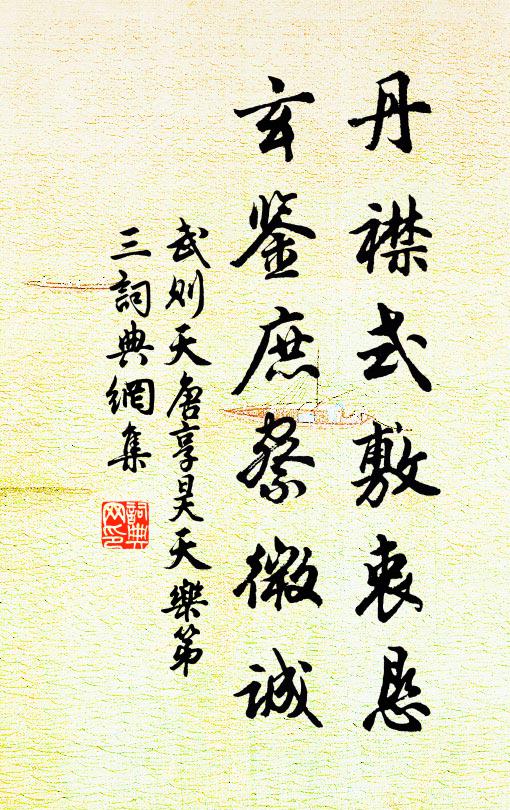 丹襟式敷衷懇
玄鉴庶察微誠
武則天唐享昊天樂第
三詞典網集
詞典网印